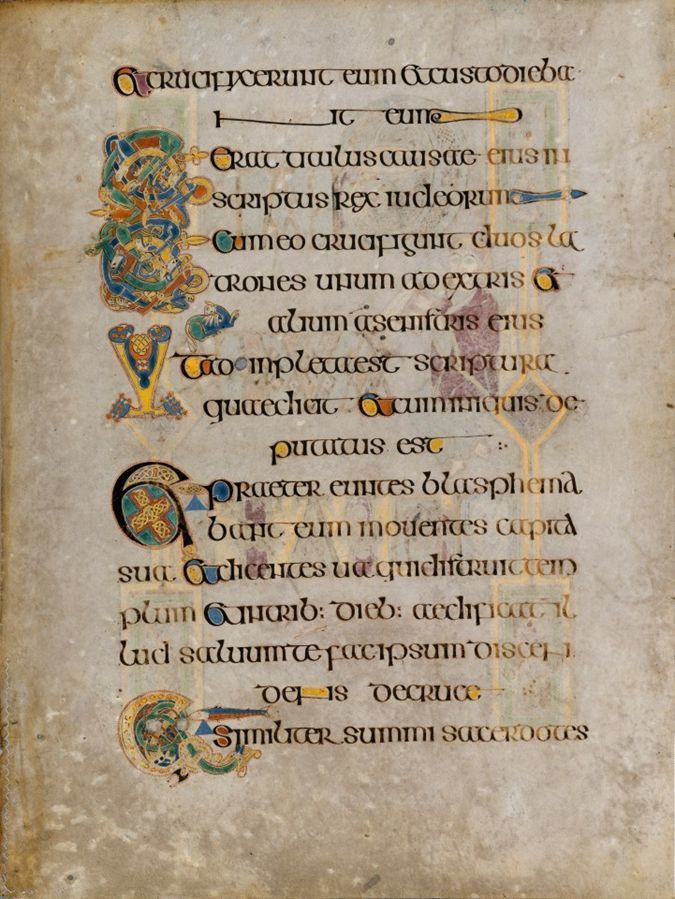 Et crucifixerunt eum et custodieba
nt eum
Et erat titulus causae eius in
scriptus rex iudeorum
Et cum eo crucifigunt duos la
trones unum adextris et
alium asenistris eius
Ut adimpleta est scriptura
quae dicit et cum iniquis de
putatus est
Et praeter euntes blasphema
bant eum mouentes capita
sua et dicentes ua qui distruit tem
plum et in trib: dieb: aedificat il
lud saluum te fac ipsum discen
dens de cruce
Et similiter summi sacerdotes